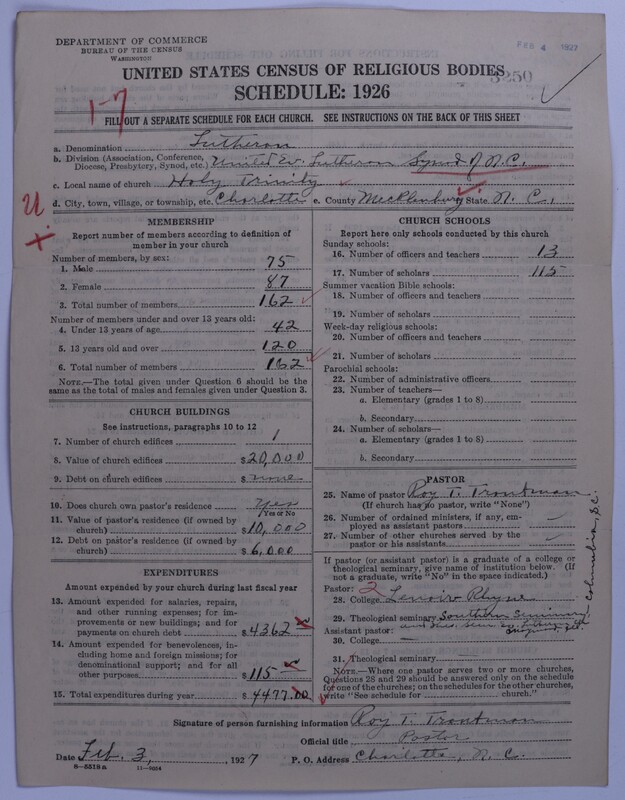 DEPARTMENT OF COMMERCE
BUREAU OF THE CENSUS
WASHINGTON
FEB 4 1927
UNITED STATES CENSUS OF RELIGIOUS BODIES
3250
SCHEDULE: 1926
1-7
FILL OUT A SEPARATE SCHEDULE FOR EACH CHURCH. SEE INSTRUCTIONS ON THE BACK OF THIS SHEET
a. Denomination Lutheran
b. Division (Association, Conference, Diocese, Presbytery, Synod, etc.) United Ev. Lutheran Synod of N.C.
c. Local name of church Holy Trinity
d. City, town, village, or township, etc. Charlotte e. County Mecklenburg State N. C.
U
x
MEMBERSHIP
Report number of members according to definition of
member in your church
Number of members, by sex:
1. Male 75
2. Female 87
3. Total number of members 162
Number of members under and over 13 years old:
4. Under 13 years of age 42
5. 13 years old and over 120
6. Total number of members 162
NOTE.—The total given under Question 6 should be the
same as the total of males and females given under Question 3.
CHURCH BUILDINGS
See instructions, paragraphs 10 to 12
7. Number of church edifices 1
8. Value of church edifices $20,000
9. Debt on church edifices $ none
10. Does church own pastor's residence Yes
(Yes or No)
11. Value of pastor's residence (if owned by
church) $10,000
12. Debt on pastor's residence (if owned by
church) $6,000
EXPENDITURES
Amount expended by your church during last fiscal year
13. Amount expended for salaries, repairs,
and other running expenses; for im-
provements or new buildings; and for
payments on church debt $4362
14. Amount expended for benevolences, in-
cluding home and foreign missions; for
denominational support; and for all
other purposes $115
15. Total expenditures during year $4477.00
CHURCH SCHOOLS
Report here only schools conducted by this church
Sunday schools:
16. Number of officers and teachers 13
17. Number of scholars 115
Summer vacation Bible schools:
18. Number of officers and teachers
19. Number of scholars
Week-day religious schools:
20. Number of officers and teachers
21. Number of scholars
Parochial schools:
22. Number of administrative officers
23. Number of teachers—
a. Elementary (grades 1 to 8)
b. Secondary
24. Number of scholars—
a. Elementary (grades 1 to 8)
b. Secondary
PASTOR
25. Name of pastor Roy T. Troutman
(If church has no pastor, write "None")
26. Number of ordained ministers, if any, em-
ployed as assistant pastors
27. Number of other churches served by the
pastor or his assistants
If pastor (or assistant pastor) is a graduate of a college or
theological seminary, give name of institution below. (If
not a graduate, write "No" in the space indicated.)
Pastor: 2
28. College Lenoir Rhyne
29. Theological seminary Southern Seminary
Columbia, S.C.
Assistant pastor:
30. College
31. Theological seminary
NOTE.—Where one pastor serves two or more churches,
Questions 28 and 29 should be answered only on the schedule
for one of the churches; on the schedules for the other churches,
write "See schedule for church."
Signature of person furnishing information Roy T. Troutman
Official title Pastor
Date Feb. 3, 1927 P. O. Address Charlotte, N. C.
8-5519a 11-9054